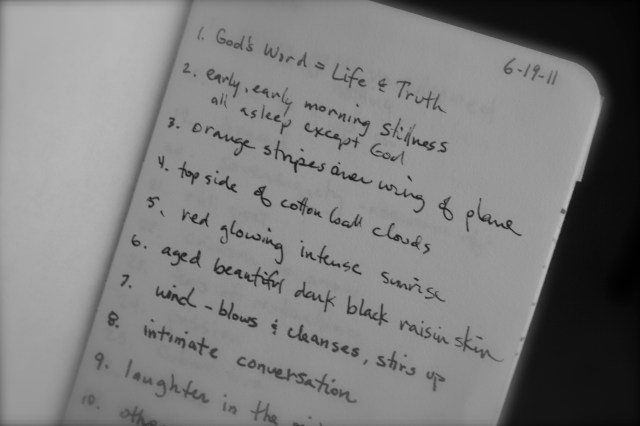 6-19-11
1. God's Word = Life & Truth
2. early, early morning stillness
all asleep except God
3. orange stripes over wing of plane
4. top side of cotton ball clouds
5. red glowing intense sunrise
6. aged beautiful dark black raisin skin
7. wind - blows & cleanses, stirs up
8. intimate conversation
9. laughter in the
10.